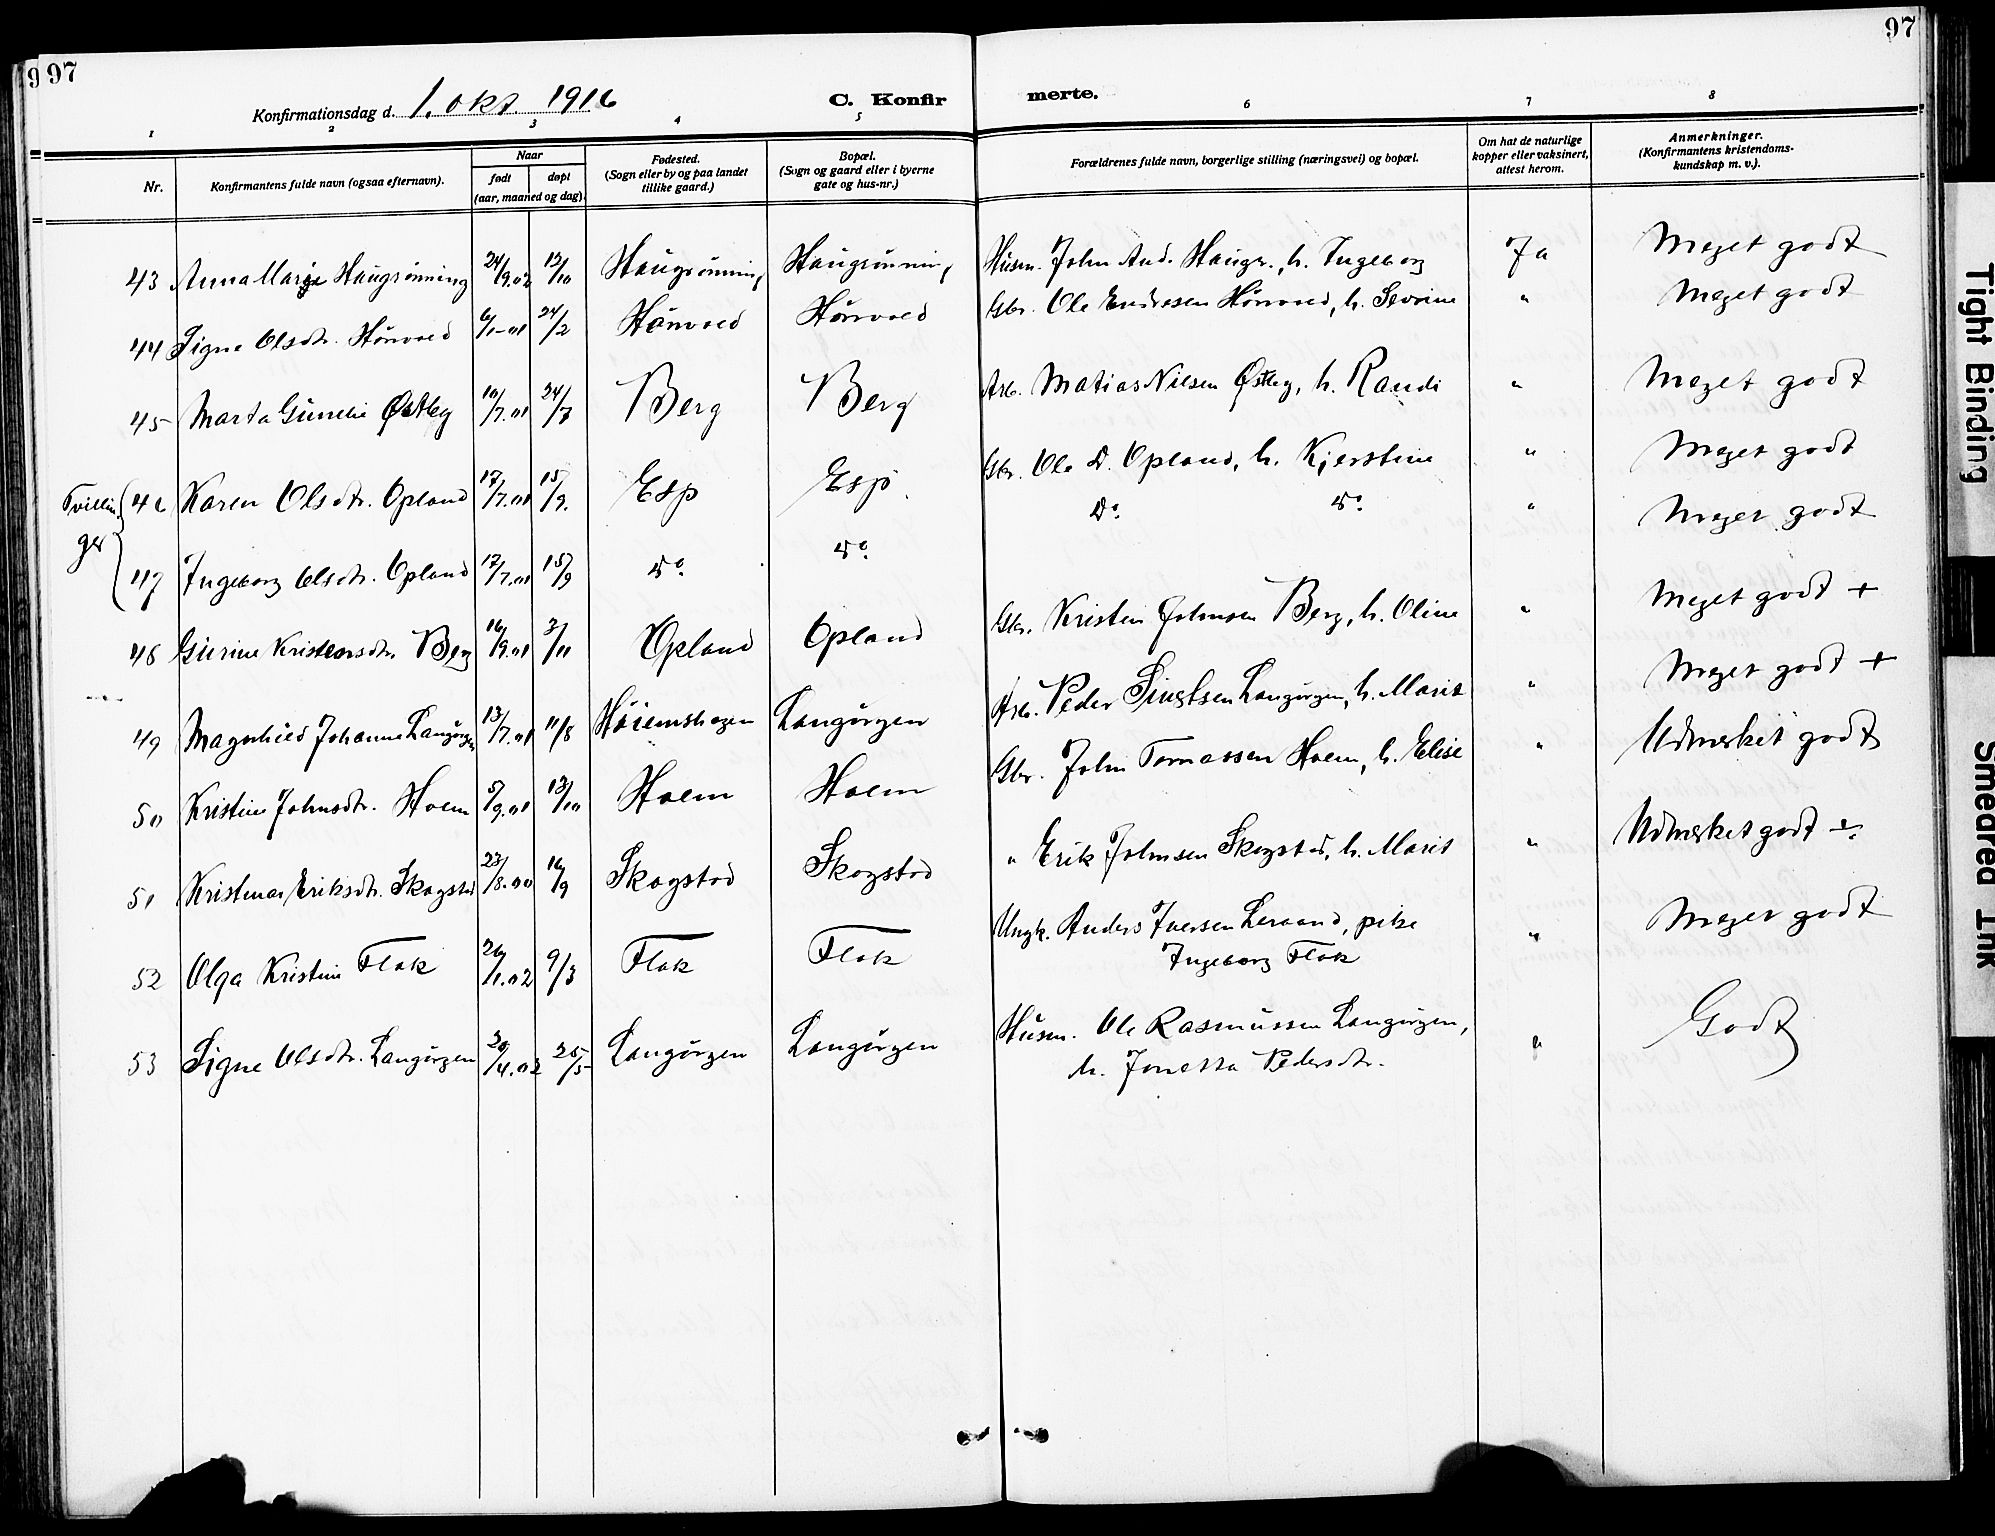 97
97
Konfirmationsdag d. 1. okt. 1916
C. Konfir
merte.
1 2 3 4 5 6 7 8
Nr.
Konfirmantens fulde navn (ogsaa efternavn).
Naar
født
døpt
(aar, maaned og dag).
Fødested.
(Sogn eller by og paa landet
tillike gaard.)
Bopæl.
(Sogn og gaard eller i byerne
gate og hus-nr.)
Forældrenes fulde navn, borgerlige stilling (næringsvei) og bopæl.
Om hat de naturlige
kopper eller vaksinert,
attest herom.
Anmerkninger.
(Konfirmantens kristendoms-
kundskap m. v.).
43 Anna Marie Haugrønning 24/9.02 12/10 Haugrønning Haugrønning Husm. John And. Haugr., h. Ingeborg Ja Meget godt
44 Signe Olsdtr. Hørvoed 6/1-01 24/2 Hørvoed Hørvoed Gbr. Ole Endresen Hørvoed, h. Sevrine " Meget godt
45 Marta Gurelie Østby 10/7.01 24/7 Berg Berg Arb. Matias Nilsen Østby, h. Randi " Meget godt
Tvillin-
ger
46 Karen Olsdtr. Opland 17/7.01 15/9. Esp Esp. Gbr. Ole D. Opland, h. Kjerstine " Meget godt
47 Ingeborg Olsdtr. Opland 17/7.01 15/9 do. do. Do. do. " Meget godt
48 Gurine Kristensdtr. Berg 16/9.01 3/11 Opland Opland Gbr. Kristen Johnsen Berg, h. Oline " Meget godt +
49 Magnhild Johanne Langørgen 13/7.01 11/8 Høiemshagen Langørgen Arb. Peder Sivertsen Langørgen, h. Marit " Meget godt +
50 Kristine Johnsdtr. Hoem 5/9.01 13/10 Hoem Hoem Gbr. John Tomassen Hoem, h. Elise " Udmerket godt
51 Kristine Eriksdtr. Skogstad 23/8.00 16/9 Skogstad Skogstad " Erik Johnsen Skogstad, h. Marit " Udmerket godt ÷
52 Olga Kristine Flok 26/1.02 9/3 Flok Flok Ungk. Anders Iversen Leraand, pike
Ingeborg Flok " Meget godt
53 Signe Olsdtr. Langørgen 20/4.02 25/5 Langørgen Langørgen Husm. Ole Rasmussen Langørgen,
h. Jonetta Pedersdtr. " Godt
Tight Binding
Smeared Ink